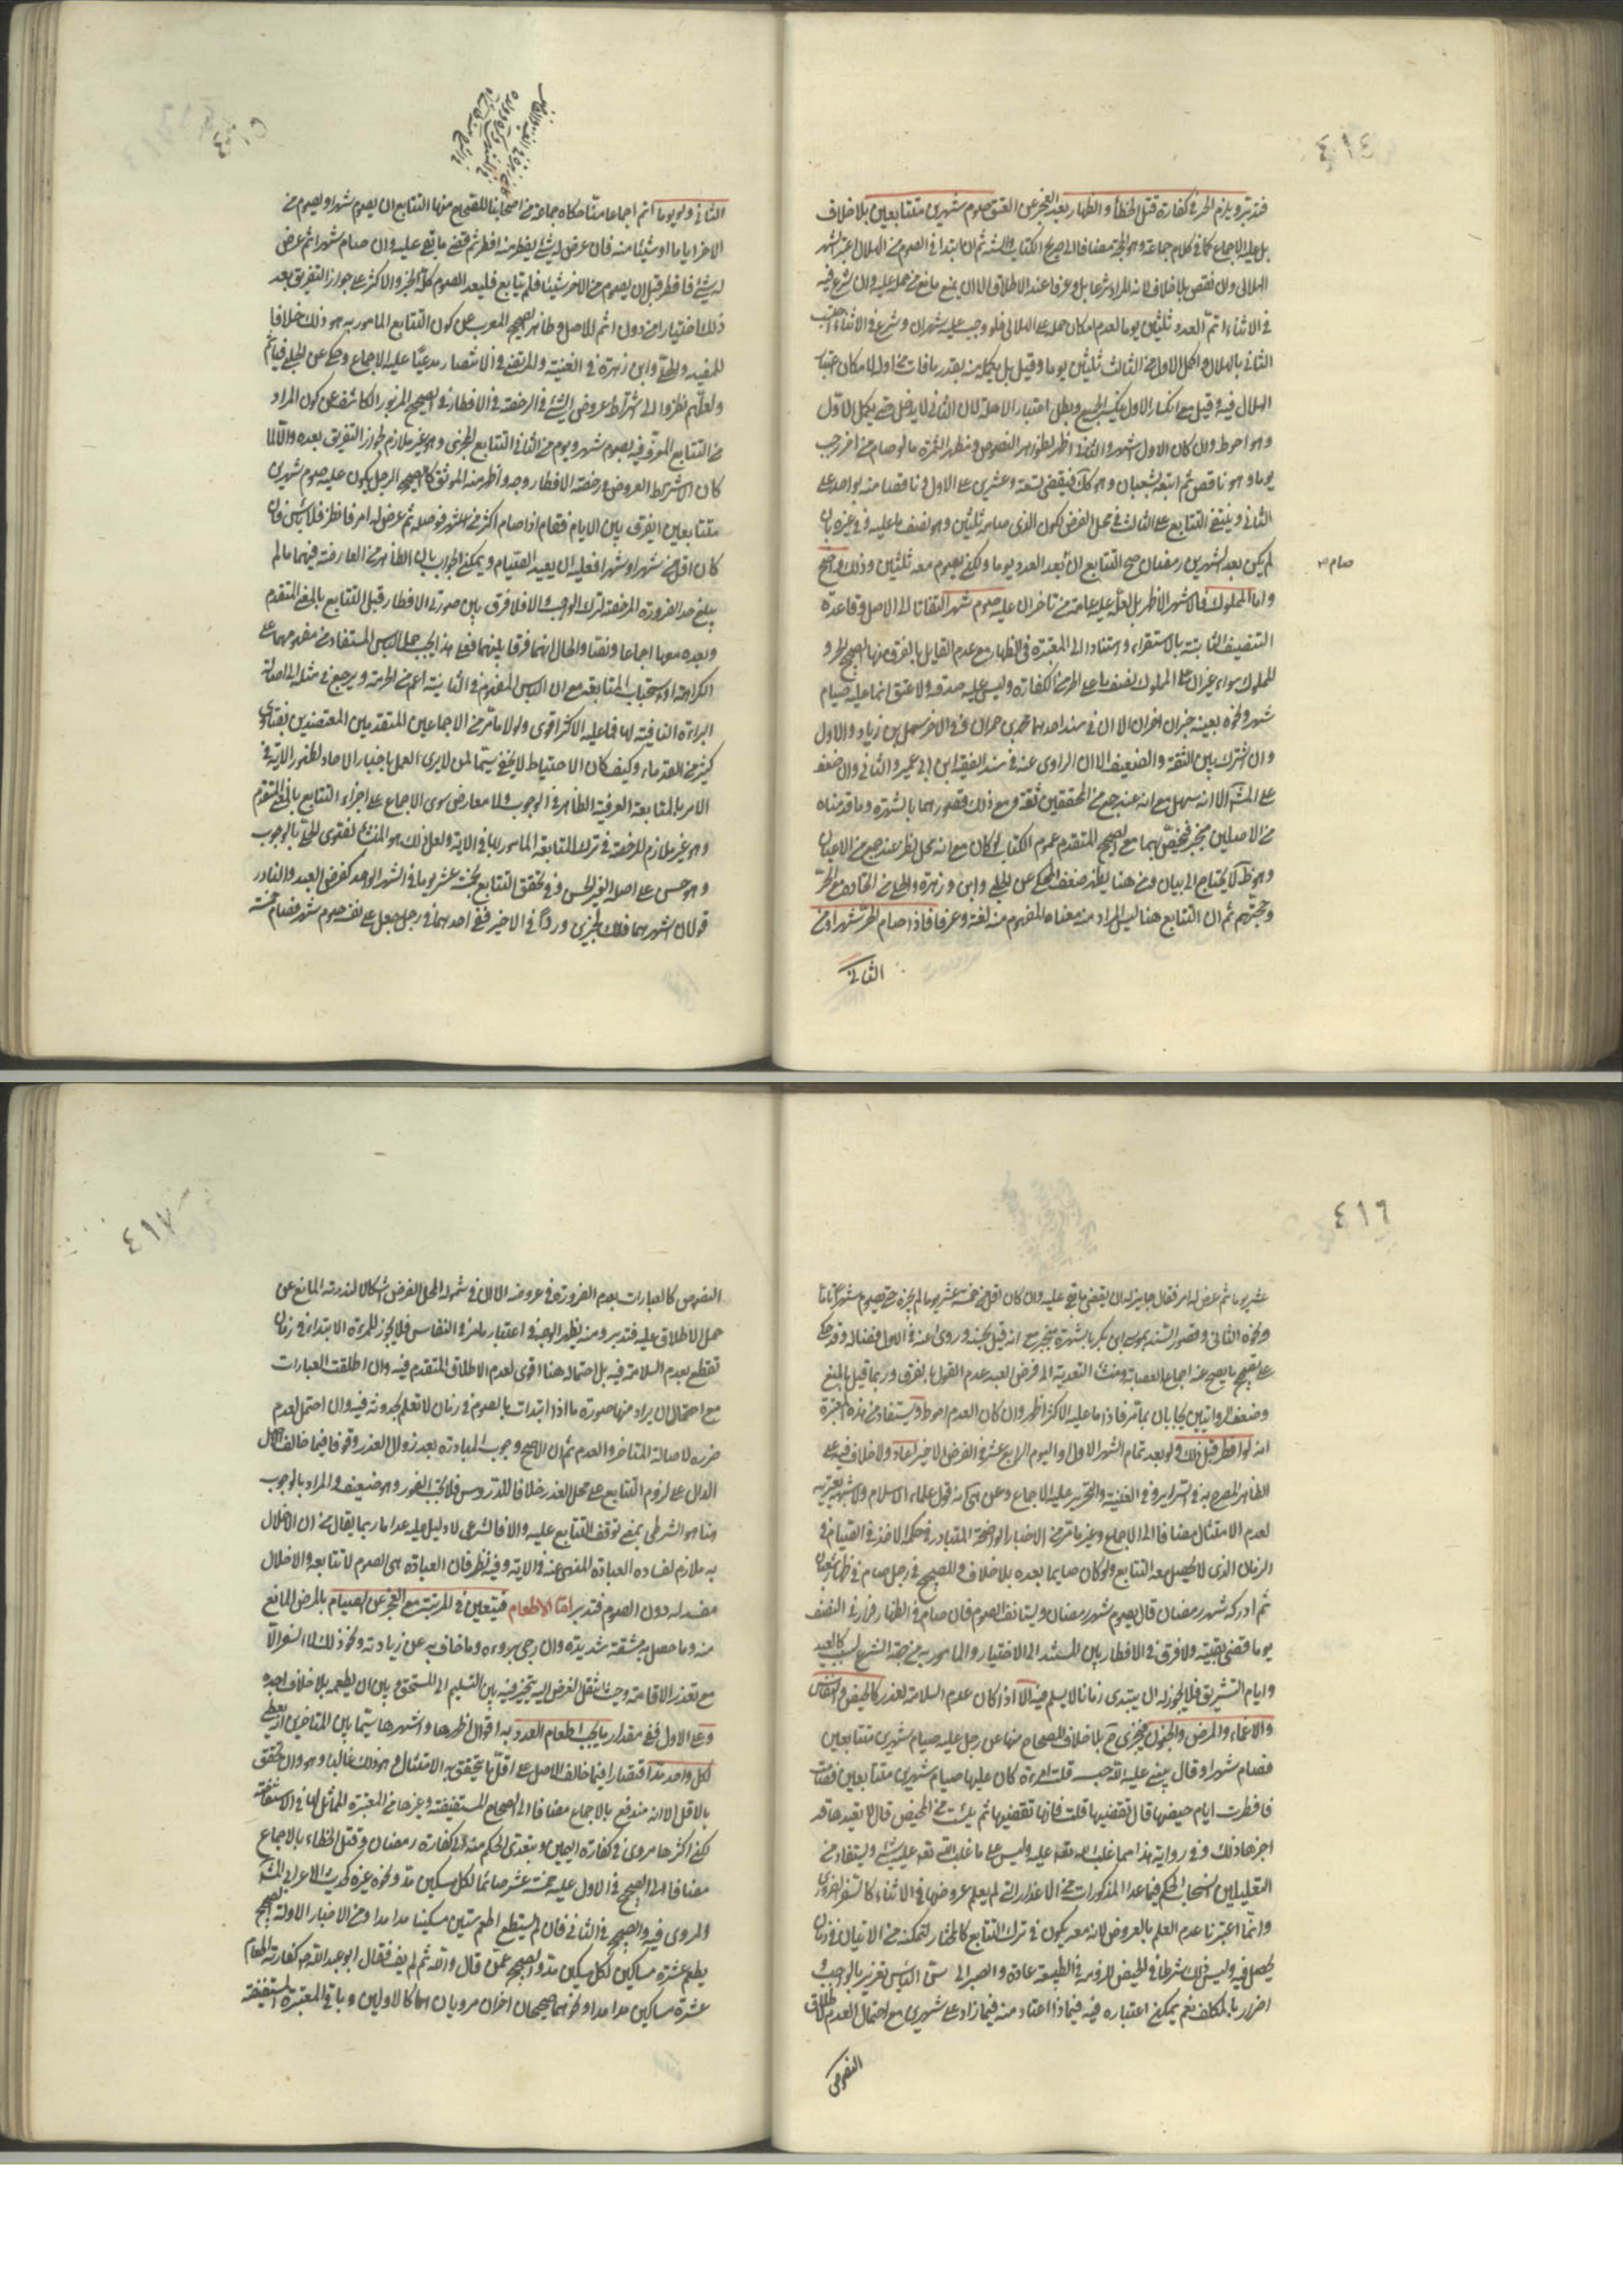 ٤١٤
فتدبر ويلزم الحر في كفارة قتل الخطأ والظهار بعد العجز عن العتق صوم شهرين متتابعين بلا خلاف
بل عليه الاجماع كما في كلام جماعة وهو الحجة مضافا الى صريح الكتاب والسنة ثم ان ابتدا في الصوم من الهلال اعتبر الشهر
الهلالى وان نقص بلا خلاف لانه المراد شرعا بل وعرفا عند الاطلاق الا ان يمنع مانع من حمله عليه وان شرع فيه
في الاثناء اتم العدد ثلثين يوما لعدم امكان حمله على الهلالى فلو وجب عليه شهران وشرع في الاثناء احتسب
الثاني بالهلال واكمل الاول من الثالث ثلثين يوما وقيل بل يكمله منه بقدر ما فات من اوله لامكان اعتبار
الهلال فيه وقيل مع انكسار الاول ينكسر الجميع وبطل اعتبار الاهلة لان الثاني لا يدخل حتى يكمل الاول
وهو احوط وان كان الاول اشهر واظهر لظواهر النصوص وتظهر الثمرة ما لو صام من اخر رجب
يوما وهو ناقص ثم اتبعه بشعبان وهو كك فيقضى تسعة وعشرين على الاول
الثاني وينتفى التتابع على الثالث في محل الفرض لكون الذى صامه ثلثين وهو نصف ما عليه وفي غيره بان
لم يكن بعد الشهرين رمضان صح التتابع ان بعد العدد يوما ولكن يصوم معه ثلثين وذلك واضح
صام
واما المملوك فالاشهر الاظهر بل لعله عليه عامة من تاخر ان عليه صوم شهر التفاتا الى الاصل وقاعدة
التنصيف الثابتة بالاستقراء واستنادا الى المعتبرة في الظهار مع عدم القايل بالفرق منها الصحيح الحر و
المملوك سواء غير ان على المملوك نصف ما على الحر من الكفارة وليس عليه صدقة ولا عتق انما عليه صيام
شهر ونحوه بعينه خبران اخران الا ان في سند احدهما محمد بن حمران وفي الاخر سهل بن زياد والاول
وان اشترك بين الثقة والضعيف الا ان الراوى عنه في سند الفقيه ابن ابي عمير والثاني وان ضعف
على المشهور الا انه سهل مع انه عند جمع من المحققين ثقة ومع ذلك قصورهما بالشهرة وما قدمناه
من الاصلين منجبر فيخص بهما مع الصحيح المتقدم عموم الكتاب لو كان مع انه محل نظر عند جمع من الاعيان
وجه لا يحتاج الى بيان ومن هنا يظهر ضعف المحكى عن الحلبي وابن زهرة
وحجتهم ثم ان التتابع هنا ليس المراد منه معناه المفهوم منه لغة وعرفا فاذا صام الحر شهرا ومن
الثاني
٤١٥
الثاني ولو يوما اتم اجماعا منا حكاه جماعة من اصحابنا للصحيح منها التتابع ان يصوم شهرا ويصوم من
الاخر اياما او شيئا منه فان عرض له شئ يفطر منه افطر ثم قضى ما بقى عليه وان صام شهرا ثم عرض
له شئ فافطر قبل ان يصوم من الاخر شيئا فلم يتابع فليعد الصوم كله الخبر والاكثر على جواز التفريق بعد
ذلك اختيارا من دون اثم للاصل وظاهر الصحيح المعرب عن كون التتابع المامور به هو ذلك خلافا
للمفيد والحلى وابن زهرة في الغنية والمرتضى في الانتصار مدعيا عليه الاجماع وحكى عن الحلبي فياثم
ولعلهم نظروا الى اشتراط عروض الشئ في الرخصة في الافطار في الصحيح المزبور الكاشف عن كون المراد
من التتابع المعرف فيه بصوم شهر ويوم من الثاني التتابع المجزى وهو غير ملازم لجواز التفريق بعده والا لما
كان لاشتراط العروض في رخصة الافطار وجه واظهر منه الموثق كالصحيح الرجل يكون عليه صوم شهرين
متتابعين ايفرق بين الايام فقال اذا صام اكثر من شهر فوصله ثم عرض له امر فافطر فلا باس فان
كان اقل من شهر او شهرا فعليه ان يعيد الصيام ويمكن الجواب بان الظاهر من العارضة فيهما ما لم
يبلغ حد الضرورة المرخصة لترك الواجب والا فلا فرق بين صورتى الافطار قبل التتابع بالمعنى المتقدم
وبعده معها اجماعا ونصا والحال انهما فرقا بينهما فعلى هذا يجب حمل الباس المستفاد من مفهومهما على
الكراهة او استحباب المتابعة مع ان الباس المفهوم في الثانية اعم من الحرمة ويرجع في مثله الى اصالة
البراءة النافية لها فما عليه الاكثر اقوى ولو لا ما مر من الاجماعين المتقدمين المعتضدين بفتاوى
كثير من القدماء وكيف كان الاحتياط لا يخفى سيما لمن لا يرى العمل باخبار الاحاد لظهور الاية في
الامر بالمتابعة العرفية الظاهر في الوجوب ولا معارض سوى الاجماع على اجزاء التتابع بالمعنى المتقدم
وهو غير ملازم للرخصة في ترك المتابعة المامور بها في الاية ولعل ذلك هو المنشأ لفتوى الحلى بالوجوب
وهو حسن على اصله الغير الحسن وفي تحقق التتابع بخمسة عشر يوما في الشهر الواحد كفرض العبد والنادر
قولان اشهرهما ذلك لخبرين وردا في الاخير ففى احدهما في رجل جعل على نفسه صوم شهر فصام خمسة
٤١٦
عشر يوما ثم عرض له امر فقال جايز له ان يقضى ما بقى عليه وان كان اقل من خمسة عشر يوما لم يجزه حتى يصوم شهرا تاما
ونحوه الثاني وقصور السند بموسى بن بكر بالشهرة منجبر مع انه قيل بحسنه وروى عنه في الاول فضالة وقد حكى
على تصحيح ما يصح عنه اجماع العصابة ومنشأ التعدية الى فرض العبد عدم القول بالفرق وربما قيل بالمنع
وضعف الروايتين يجاب بان بما مر فاذا ما عليه الاكثر اظهر وان كان العدم احوط ويستفاد من هذه المعتبرة
انه لو افطر قبل ذلك ولو بعد تمام الشهر الاول واليوم الرابع عشر في الفرض الاخير اعاد ولا خلاف فيه على
الظاهر المصرح به في السرائر وفي الغنية والتحرير عليه الاجماع وعن المنتهى انه قول علماء الاسلام ولا شبهة يعتريه
لعدم الامتثال مضافا الى الاجماع وغيره مما مر من الاخبار الواضحة المتبادر في حكم الاخذ في الصيام في
الزمان الذى لا يحصل معه التتابع ولو كان صايما بعده بلا خلاف وللصحيح في رجل صام في ظهار شعبان
ثم ادركه شهر رمضان قال يصوم شهر رمضان ويستانف الصوم فان صام في الظهار فزاد في النصف
يوما قضى بقيته ولا فرق في الافطار بين المستند الى الاختيار والمامور به من جهة الشرع لسبب كالعيد
وايام التشريق فلا يجوز له ان يبتدى زمانا لا يسلم فيه الا اذا كان عدم السلامة لعذر كالحيض والنفاس
والاغماء والمرض والجنون فيجزى ح بلا خلاف للصحاح منها عن رجل عليه صيام شهرين متتابعين
فصام شهرا ومرض قال يبنى عليه الله حبسه قلت امرءة كان عليها صيام شهرين متتابعين فصامت
فافطرت ايام حيضها قال تقضيها قلت فانها تقضيها ثم يئست من الحيض قال لا تعيدها قد
اجزاها ذلك وفي رواية هذا مما غلب الله تعالى عليه وليس على ما غلب الله تعالى عليه شئ ويستفاد من
التعليلين انسحاب الحكم فيما عدا المذكورات من الاعذار التي لم يعلم عروضها في الاثناء كالسفر الضرورى
وانما اعتبرنا عدم العلم بالعروض لانه معه يكون في ترك التتابع كالمختار لتمكنه من الاتيان في زمان
يحصل فيه وليس ذلك شرطا في الحيض للزومه في الطبيعة عادة والصبر الى سن الياس تغرير بالواجب و
اضرار بالمكلف نعم يمكن اعتباره فيه فيما اذا اعتاد منه فيما زاد على شهرين مع احتمال العدم لاطلاق
النصوص
٤١٧
النصوص كالعبارات بعدم الضرورة في عروضه الا ان في شموله لمحل الفرض اشكالا لندرته المانع عن
حمل الاطلاق عليه فتدبر ومنه يظهر الوجه في اعتبار ما مر في النفاس فلا يجوز للمرءة الابتداء في زمان
تقطع بعدم السلامة فيه بل احتماله هنا اقوى لعدم الاطلاق المتقدم فيه وان اطلقت العبارات
مع احتمال ان يراد منها صورة ما اذا ابتدات بالصوم في زمان لا تعلم بحدوثه فيه وان احتمل لعدم
ضرره لاصالة المتاخر والعدم ثم ان الاصح وجوب المبادرة بعد زوال العذر وقوفا فيما خالف الاصل
الدال على لزوم التتابع على محل العذر خلافا للدروس فلا يجب الفور وهو ضعيف والمراد بالوجوب
هنا هو الشرطى بمعنى توقف التتابع عليه والا فالشرعى لا دليل عليه عدا ما ربما يقال من ان الاخلال
به ملازم لفساده العبادة المنهى عنه في الاية وفيه نظر فان العبادة هى الصوم لا تتابعه والاخلال
مفسد له دون الصوم فتدبر اما الاطعام فيتعين في المرتبة مع العجز عن الصيام بالمرض المانع
منه وما حصل به مشقة شديدة وان رجى برؤه وما خاف به عن زيادته ونحو ذلك لا السفر الا
مع تعذر الاقامة وحيث انتقل الفرض اليه يتخير فيه بين التسليم الى المستحق وبين ان يطعمه بلا خلاف اجده
وعلى الاول ففى مقدار ما يجب اطعام العدد به اقوال اظهرها واشهرها سيما بين المتاخرين انه يعطى
لكل واحد مد اقتصارا فيما خالف الاصل على اقل ما يتحقق به الامتثال وهو ذلك غالبا وهو وان تحقق
بالاقل الا انه مندفع بالاجماع مضافا الى الصحاح المستفيضة وغيرها من المعتبرة المماثل لها في الاستفاضة
لكن اكثرها مروى في كفارة اليمين ويتعدى الحكم منه الى كفارة رمضان وقتل الخطاء بالاجماع
مضافا الى الصحيح في الاول عليه خمسة عشر صاعا لكل مسكين مد ونحوه غيره كحديث الاعرابي المشهور
والمروى فيه والصحيح في الثاني فان لم يستطع اطعم ستين مسكينا مدا مدا ومن الاخبار الاولة الصحيح
يطعم عشرة مساكين لكل مسكين مد والصحيح عمن قال والله ثم لم يف فقال ابو عبد الله ع كفارته اطعام
عشرة مساكين مدا مدا ونحوهما صحيحان اخران مرويان هما كالاولين وباقى المعتبرة المستفيضة